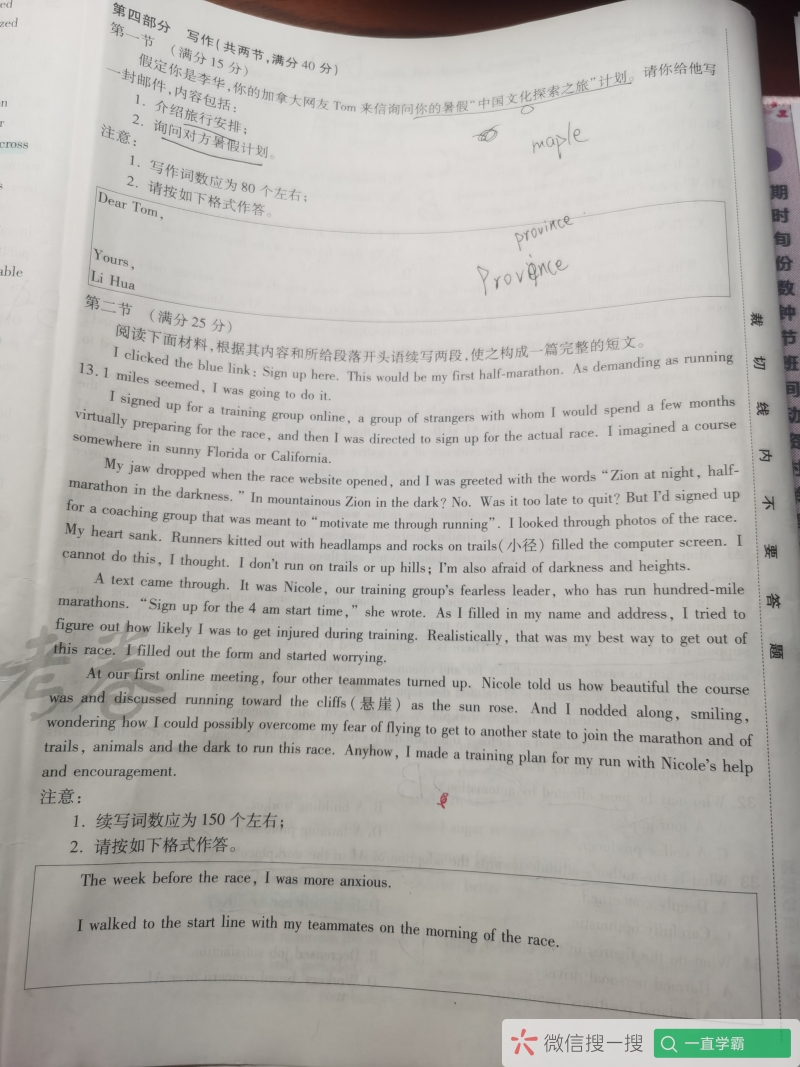 ed
zed
n
r
cross
s
able
第四部分 写作(共两节,满分40分)
第一节 (满分15分)
假定你是李华,你的加拿大网友Tom来信询问你的暑假“中国文化探索之旅”计划。请你给他写
一封邮件,内容包括:
1. 介绍旅行安排;
2. 询问对方暑假计划。
maple
注意:
1. 写作词数应为80个左右;
2. 请按如下格式作答。
Dear Tom,
province
Province
Yours,
Li Hua
第二节 (满分25分)
阅读下面材料,根据其内容和所给段落开头语续写两段,使之构成一篇完整的短文。
I clicked the blue link: Sign up here. This would be my first half-marathon. As demanding as running
13.1 miles seemed, I was going to do it.
I signed up for a training group online, a group of strangers with whom I would spend a few months
virtually preparing for the race, and then I was directed to sign up for the actual race. I imagined a course
somewhere in sunny Florida or California.
My jaw dropped when the race website opened, and I was greeted with the words “Zion at night, half-
marathon in the darkness.” In mountainous Zion in the dark? No. Was it too late to quit? But I'd signed up
for a coaching group that was meant to “motivate me through running”. I looked through photos of the race.
My heart sank. Runners kitted out with headlamps and rocks on trails(小径) filled the computer screen. I
cannot do this, I thought. I don't run on trails or up hills; I'm also afraid of darkness and heights.
A text came through. It was Nicole, our training group's fearless leader, who has run hundred-mile
marathons. “Sign up for the 4 am start time,” she wrote. As I filled in my name and address, I tried to
figure out how likely I was to get injured during training. Realistically, that was my best way to get out of
this race. I filled out the form and started worrying.
At our first online meeting, four other teammates turned up. Nicole told us how beautiful the course
was and discussed running toward the cliffs(悬崖) as the sun rose. And I nodded along, smiling,
wondering how I could possibly overcome my fear of flying to get to another state to join the marathon and of
trails, animals and the dark to run this race. Anyhow, I made a training plan for my run with Nicole's help
and encouragement.
注意:
1. 续写词数应为150个左右;
2. 请按如下格式作答。
The week before the race, I was more anxious.
I walked to the start line with my teammates on the morning of the race.
裁切线内不要答题
期
时
旬
份
数
钟
节
班
间
动
微信搜一搜
一直学霸